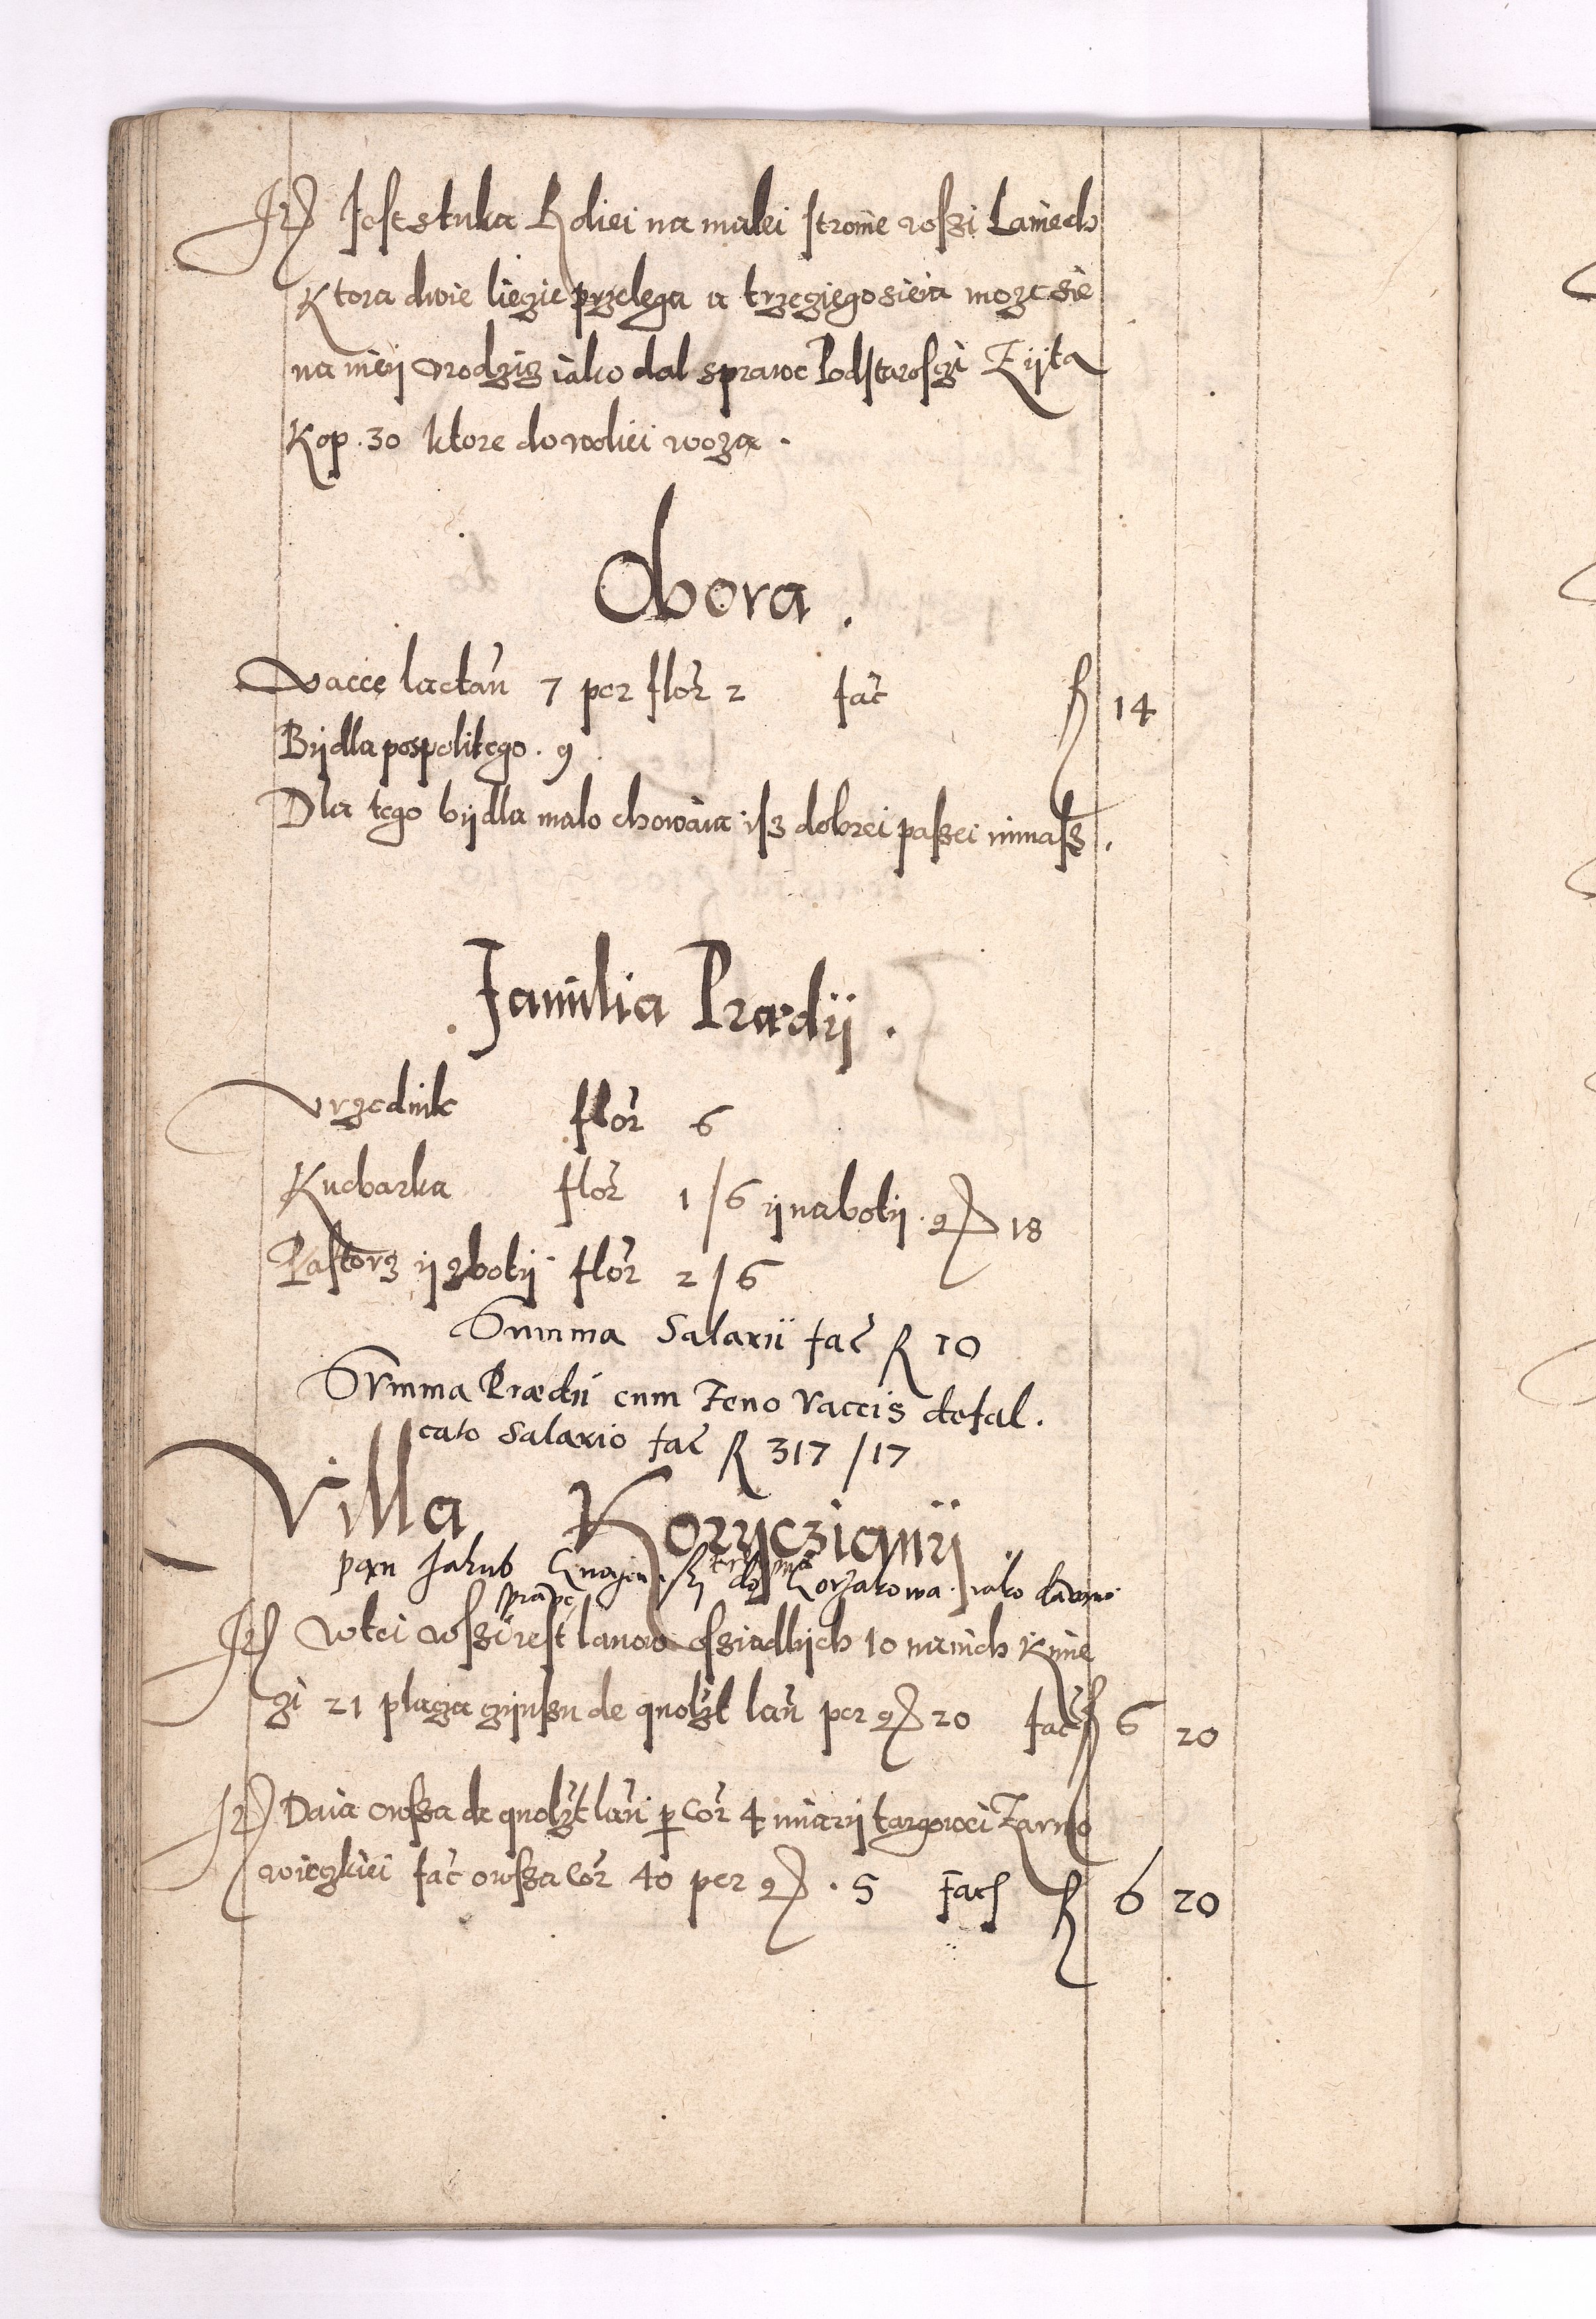 Jt Jest stuka Roliei na malei stronie wsszi Lamech
Ktora dwie liegie przelega a trzeziego sieia moze sie
na niey vrodzicz iako dal sprawe Podstaroszi Zyta
Kop. 30 ktore do woliei woza.
Obora.
Vacce lactan 7 per flor 2 fac R 14
Bydla pospolitego. 9
Dla tego bydla malo chowaia isz dobrei paszei nimasz.
Familia Prædij.
Vrzednik flor 6
Kucharka flor 1/6 y na boty. gr 18
Pastorz y z boty flor 2/6
Summa Salarii fac R 10
Summa Prædii cum Feno Vaccis defal.
cato Salario fac R 317/17
Villa Koryczianij
pan Jakub do Korzakowa iako dawno
sprawe
Jt W tei wsszi iest lanow ossiadlych 10 na nich Kmie
zi 21 placza czynszu de quolzt lan per gr 20 fac R 6 20
Jt Daia owssa de quolzt lan per Cor 4 miary targowei Zarno
wieczkiei fac owssa Cor 40 per gr. 5 fac R 6 20